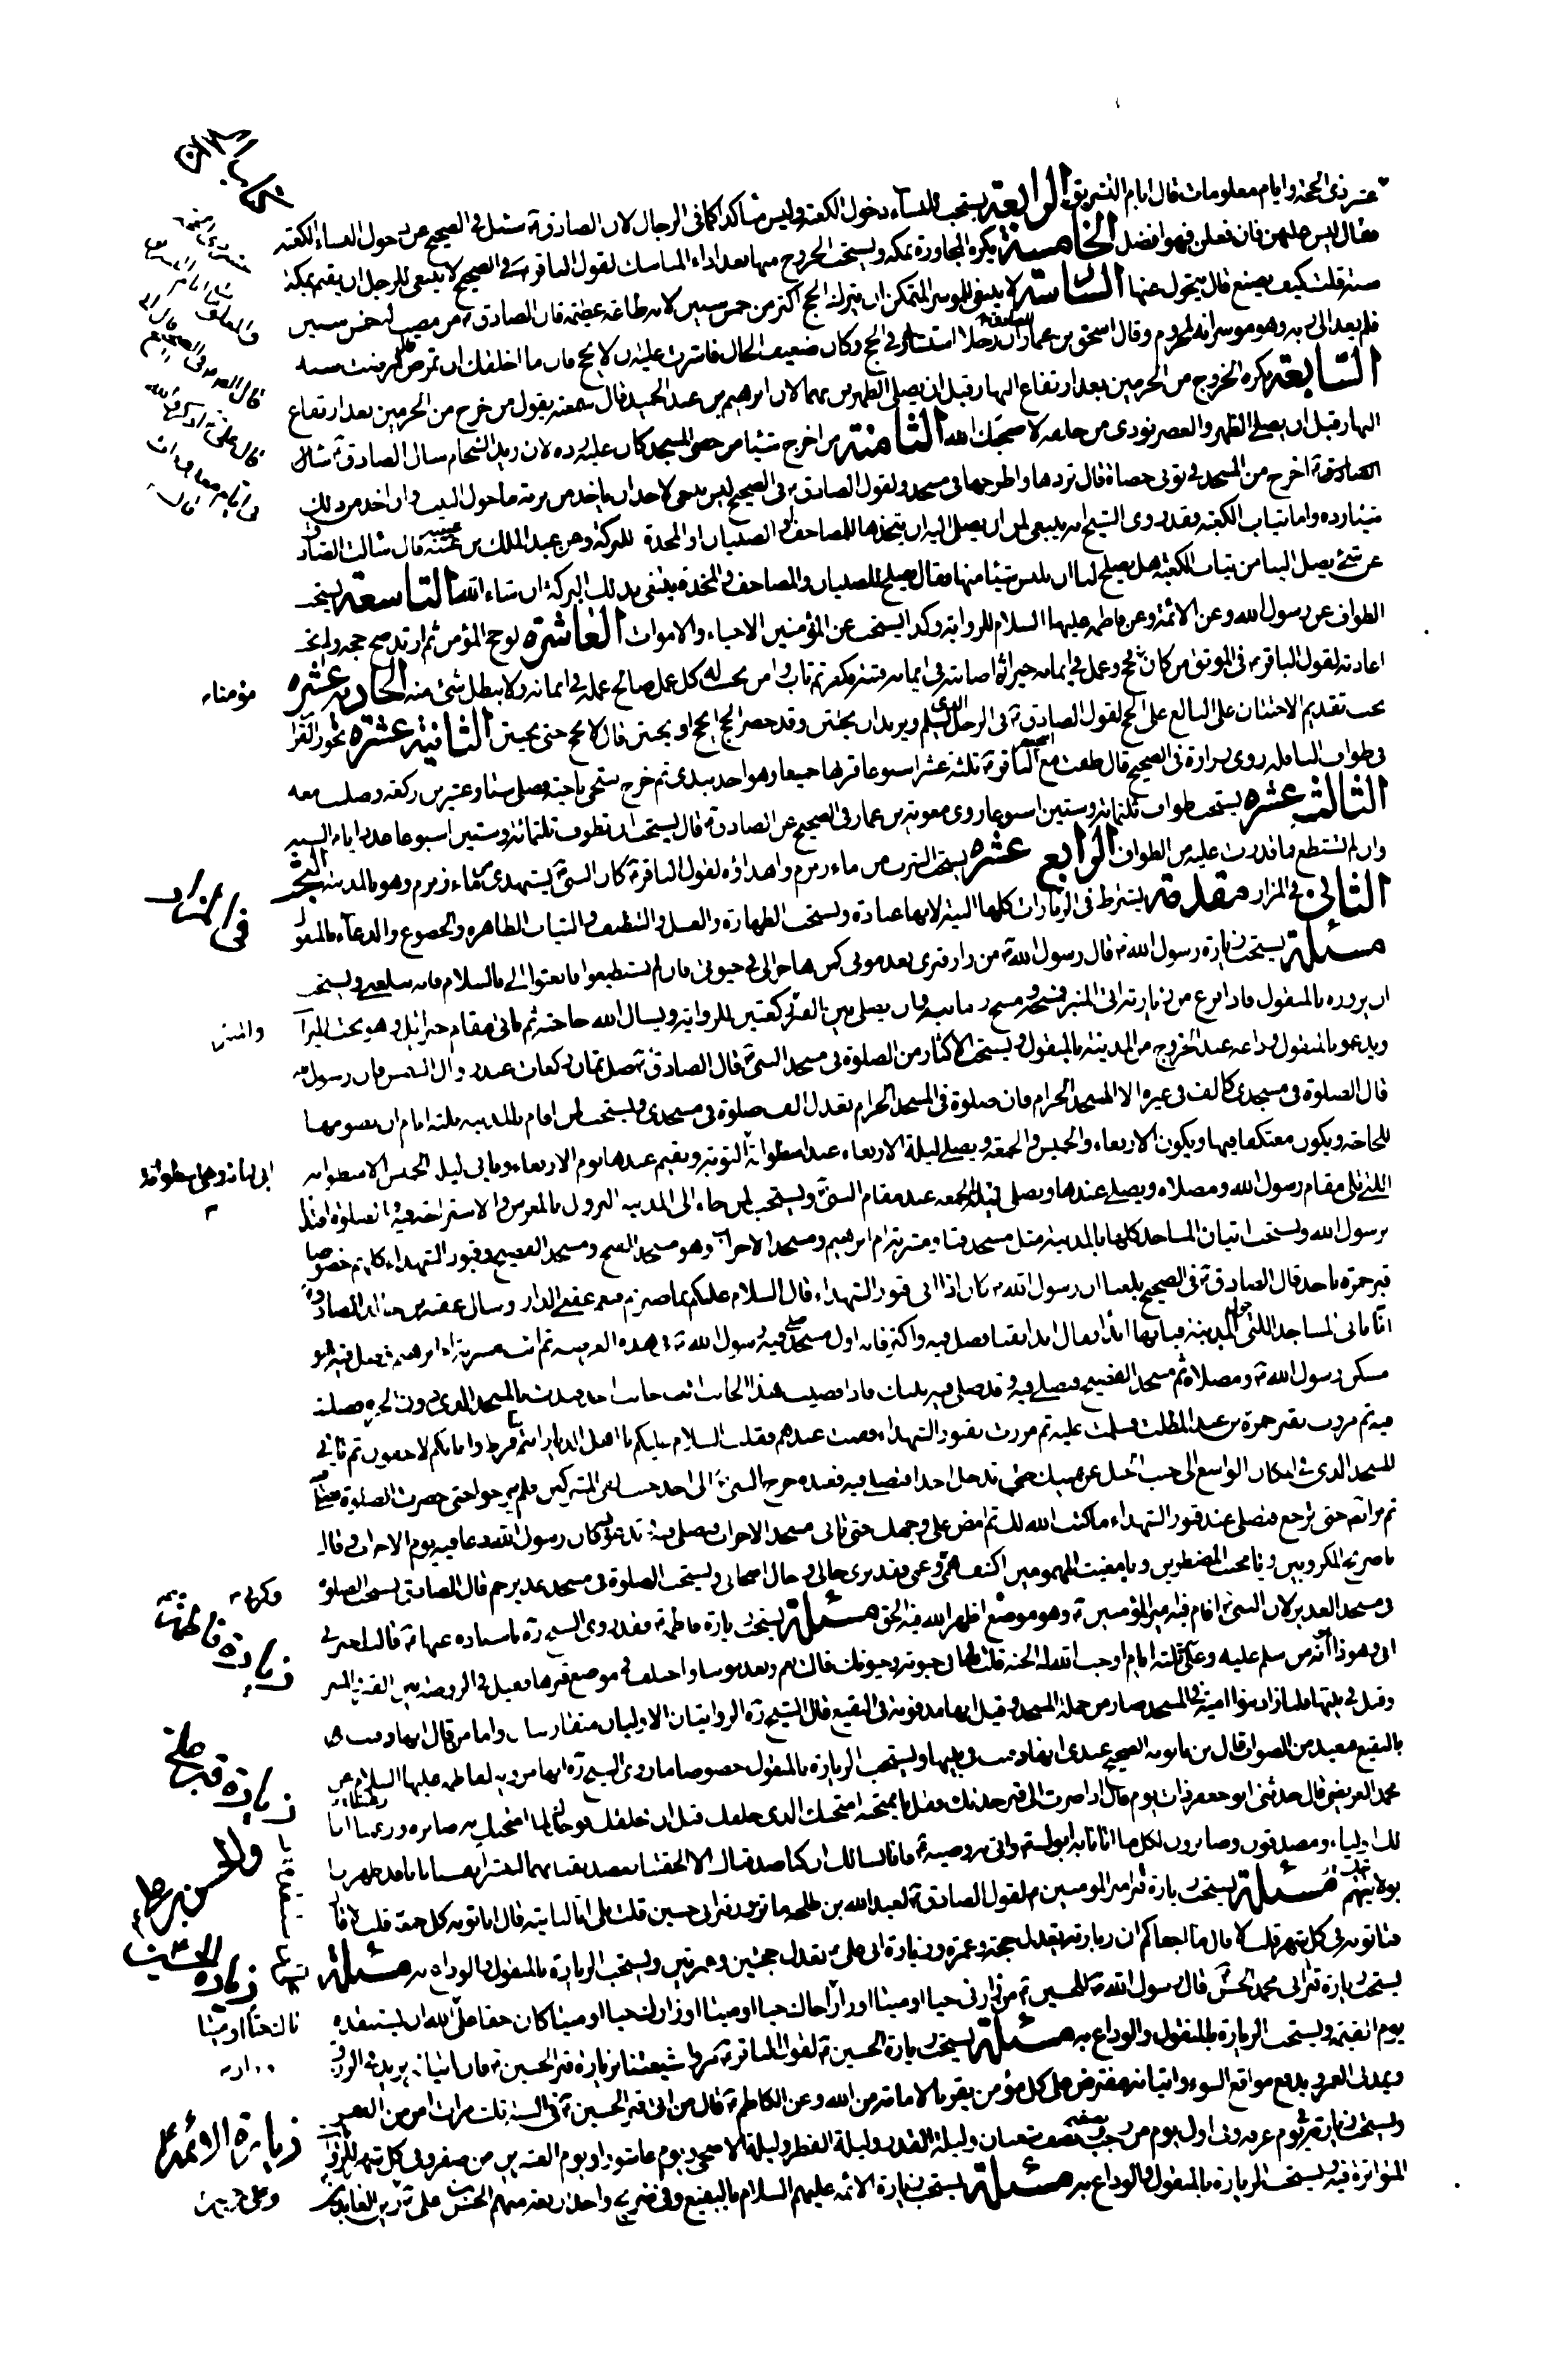 عشر ذى الحجة وايام معلومات قال ايام التشريق الرابعة يستحب للنساء دخول الكعبة وليس متاكدا كما فى الرجال لان الصادق ع سئل فى الصحيح عن دخول النساء الكعبة
فقال ليس عليهن فان فعلن فهو افضل الخامسة يكره المجاورة بمكة ويستحب الخروج منها بعد اداء المناسك لقول الباقر ع فى الصحيح لا ينبغى للرجل ان يقيم بمكة
سنة قلت كيف يصنع قال يتحول عنها السادسة لا ينبغى للموسر المتمكن ان يترك الحج اكثر من خمس سنين لانه طاعة عظيمة قال الصادق ع من مضى له خمس سنين
فلم يفد الى ربه وهو موسر انه لمحروم وقال اسحق بن عمار ان رجلا استشارنى فى الحج وكان ضعيف الحال فاشرت عليه ان لا يحج قال ما اخلقك ان تمرض سنة فمرضت سنة
السابعة يكره الخروج من الحرمين بعد ارتفاع النهار قبل ان يصلى الظهرين بهما لان ابرهيم بن عبد الحميد قال سمعته يقول من خرج من الحرمين بعد ارتفاع
النهار قبل ان يصلى الظهر والعصر نودى من خلفه لا صحبك الله الثامنة من اخرج شيئا من حصى المسجد كان عليه رده لان زيد الشحام سال الصادق ع قال
اخرج من المسجد فى ثوبى حصاة قال تردها او اطرحها فى مسجد ولقول الصادق ع فى الصحيح ليس ينبغى لاحد ان ياخذ من تربة ما حول البيت وان اخذ من ذلك
شيئا رده واما ثياب الكعبة فقد روى الشيخ انه ينبغى لمن يصل اليه ان يتخذها للمصاحف او الصبيان او المخدة للبركة وعن عبد الملك بن عتبة قال سالت الصادق
عن شئ يصل الينا من ثياب الكعبة هل يصلح لنا ان نلبس شيئا منها فقال يصلح للصبيان والمصاحف والمخدة يبتغى بذلك البركة ان شاء الله التاسعة يستحب
الطواف عن رسول الله وعن الائمة وعن فاطمة عليهما السلام للرواية وكذا يستحب عن المؤمنين الاحياء والاموات العاشرة لو حج المؤمن ثم ارتد صح حجه ولم يجب
اعادته لقول الباقر ع فى الموثق من كان مؤمنا فحج وعمل فى ايمانه خيرا ثم اصابته فى ايمانه فتنة فكفر ثم تاب وامن يحسب له كل عمل صالح عمله فى ايمانه ولا يبطل شئ منه الحادية عشره
يجب تقديم الاختتان على البالغ على الحج لقول الصادق ع فى الرجل الذى يسلم ويريد ان يختتن وقد حضر الحج ايحج او يختتن قال لا يحج حتى يختتن الثانية عشره يجوز القران
فى طواف النافلة روى زرارة فى الصحيح قال طفت مع الباقر ع ثلثة عشر اسبوعا قرنها جميعا وهو اخذ بيدى ثم خرج فتنحى ناحية فصلى ستا وعشرين ركعة وصليت معه
الثالث عشره يستحب طواف ثلثمائة وستين اسبوعا روى معوية بن عمار فى الصحيح عن الصادق ع قال يستحب ان تطوف ثلثمائة وستين اسبوعا عدد ايام السنة
وان لم تستطع فما قدرت عليه من الطواف الرابع عشره يستحب الشرب من ماء زمزم واهداؤه لقول الباقر ع كان النبى ص يستهدى ماء زمزم وهو بالمدينة البحث
الثانى فى المزار مقدمة يشترط فى الزيارات كلها النية لانها عبادة ويستحب الطهارة والغسل والتنظيف والثياب الطاهرة والخضوع والدعاء بالمنقول
مسئلة يستحب زيارة رسول الله ص قال رسول الله ص من زار قبرى بعد موتى كمن هاجر الى فى حيوتى فان لم تستطيعوا فابعثوا الى بالسلام فانه يبلغنى ويستحب
ان يزوره بالمنقول فاذا فرغ من زيارته اتى المنبر فمسحه ومسح رمانتيه وان يصلى بين القبر ركعتين للرواية ويسال الله حاجته ثم ياتى مقام جبرائيل وهو تحت الميزاب
ويدعو بالمنقول ووداعه عند الخروج من المدينة بالمنقول ويستحب الاكثار من الصلوة فى مسجد النبى ص قال الصادق ع صل ثمان ركعات عند زوال الشمس فان رسول الله ص
قال الصلوة فى مسجدى كالف فى غيره الا المسجد الحرام فان صلوة فى المسجد الحرام تعدل الف صلوة فى مسجدى ويستحب لمن اقام بالمدينة ثلثة ايام ان يصومها
للحاجة ويكون معتكفا فيها ويكون الاربعاء والخميس والجمعة ويصلى ليلة الاربعاء عند اسطوانة التوبة ويقيم عندها يوم الاربعاء وياتى ليلة الخميس الاسطوانة
التى تلى مقام رسول الله ومصلاه ويصلى عندها ويصلى ليلة الجمعة عند مقام النبى ص ويستحب لمن جاء الى المدينة النزول بالمعرس والاستراحة فيه والصلوة اقتداء
برسول الله ويستحب اتيان المساجد كلها بالمدينة مثل مسجد قباء ومشربة ام ابرهيم ومسجد الاحزاب وهو مسجد الفتح ومسجد الفضيخ وقبور الشهداء كلهم خصوصا
قبر حمزة باحد قال الصادق ع فى الصحيح بلغنا ان رسول الله ص كان اذا اتى قبور الشهداء قال السلام عليكم بما صبرتم فنعم عقبى الدار وسال عقبة بن خالد الصادق ع
انا ناتى المساجد التى حول المدينة فبايها ابدأ فقال ابدأ بقبا فصل فيه واكثر فانه اول مسجد صلى فيه رسول الله ص فى هذه العرصة ثم ائت مشربة ام ابرهيم فصل فيها فهو
مسكن رسول الله ص ومصلاه ثم مسجد الفضيخ فتصلى فيه وقد صلى فيه نبيك فاذا قضيت هذا الجانب اتيت جانب احد فبدات بالمسجد الذى دون الحرة فصليت
فيه ثم مررت بقبر حمزة بن عبد المطلب فسلمت عليه ثم مررت بقبور الشهداء فقمت عندهم فقلت السلام عليكم يا اهل الديار انتم لنا فرط وانا بكم لاحقون ثم تاتى
المسجد الذى فى المكان الواسع الى جنب الجبل عن يمينك حتى تدخل احدا فتصلى فيه فعنده خرج النبى ص الى احد حيث لقى المشركين فلم يبرحوا حتى حضرت الصلوة فصلى فيه
ثم مر ايضا حتى ترجع فتصلى عند قبور الشهداء ما كتب الله لك ثم امض على وجهك حتى تاتى مسجد الاحزاب فتصلى فيه وتدعو فيه فان رسول الله ص دعا فيه يوم الاحزاب وقال
يا صريخ المكروبين ويا مجيب المضطرين ويا مغيث المهمومين اكشف همى وغمى فقد ترى حالى وحال اصحابى ويستحب الصلوة فى مسجد غدير خم قال الصادق ع يستحب الصلوة
فى مسجد الغدير لان النبى ص اقام فيه امير المؤمنين ع وهو موضع اظهر الله فيه الحق مسئلة يستحب زيارة فاطمة ع فقد روى الشيخ ره باسناده عنها ع قالت اخبرنى
ابى وهو ذا انه من سلم عليه وعلى ثلثة ايام اوجب الله له الجنة قلت لها فى حيوته وحيوتك قالت نعم وبعد موتنا واختلف فى موضع قبرها فقيل فى الروضة بين القبر والمنبر
وقيل فى بيتها فلما زاد بنوا امية فى المسجد صار من جملة المسجد وقيل انها مدفونة فى البقيع قال الشيخ ره الروايتان الاوليان متقاربتان واما من قال انها دفنت
بالبقيع فبعيد من الصواب قال ابن بابويه الصحيح عندى انها دفنت فى بيتها ويستحب الزيارة بالمنقول خصوصا ما روى الشيخ ره انها مروية لفاطمة عليها السلام عن
محمد العريضى قال حدثنى ابو جعفر ذات يوم قال اذا صرت الى قبر جدتك فقل يا ممتحنة امتحنك الذى خلقك قبل ان يخلقك فوجدك لما امتحنك به صابرة وزعمنا انا
لك اولياء ومصدقون وصابرون لكل ما اتانا به ابوك ص واتى به وصيه ع فانا نسالك ان كنا صدقناك الا الحقتنا بتصديقنا لهما لنبشر انفسنا بانا قد طهرنا
بولايتهم مسئلة يستحب زيارة قبر امير المومنين ع لقول الصادق ع لعبد الله بن طلحة ما تزور قبر ابى حسين قلت بلى انا لناتيه قال اتاتونه كل جمعة قلت لا قال
فتاتونه فى كل شهر قلت لا قال ما اجفاكم ان زيارته تعدل حجة وعمرة وزيارة ابى على ع تعدل حجتين وعمرتين ويستحب الزيارة بالمنقول والوداع به مسئلة
يستحب زيارة قبر ابى محمد الحسن ع قال رسول الله ص للحسين ع من زارنى حيا او ميتا او زار اباك حيا او ميتا او زار اخاك حيا او ميتا او زارك حيا او ميتا كان حقا على الله ان يستنقذه
يوم القيمة ويستحب الزيارة بالمنقول والوداع به مسئلة يستحب زيارة الحسين ع لقول الباقر ع مروا شيعتنا بزيارة قبر الحسين ع فان اتيانه يزيد فى الرزق
ويمد فى العمر ويدفع مواقع السوء واتيانه مفترض على كل مؤمن يقر له بالامامة من الله وعن الكاظم ع قال من اتى قبر الحسين ع فى السنة ثلث مرات امن من الفقر
ويستحب زيارته يوم عرفة وفى اول يوم من رجب ونصفه ونصف شعبان وليلة القدر وليلة الفطر وليلة الاضحى ويوم عاشورا ويوم العشرين من صفر وفى كل شهر للروايات
المتواترة فيه ويستحب الزيارة بالمنقول والوداع به مسئلة يستحب زيارة الائمة عليهم السلام بالبقيع وفى ضريح واحد اربعة منهم الحسن بن على ع وزين العابدين
فى المزار
والمنبر
ابى لبابة وهى اسطوانة
وكربى
زيارة فاطمة
زيارة قبر على
والحسن بن على
زيارة الحسين
زيارة الائمة ع